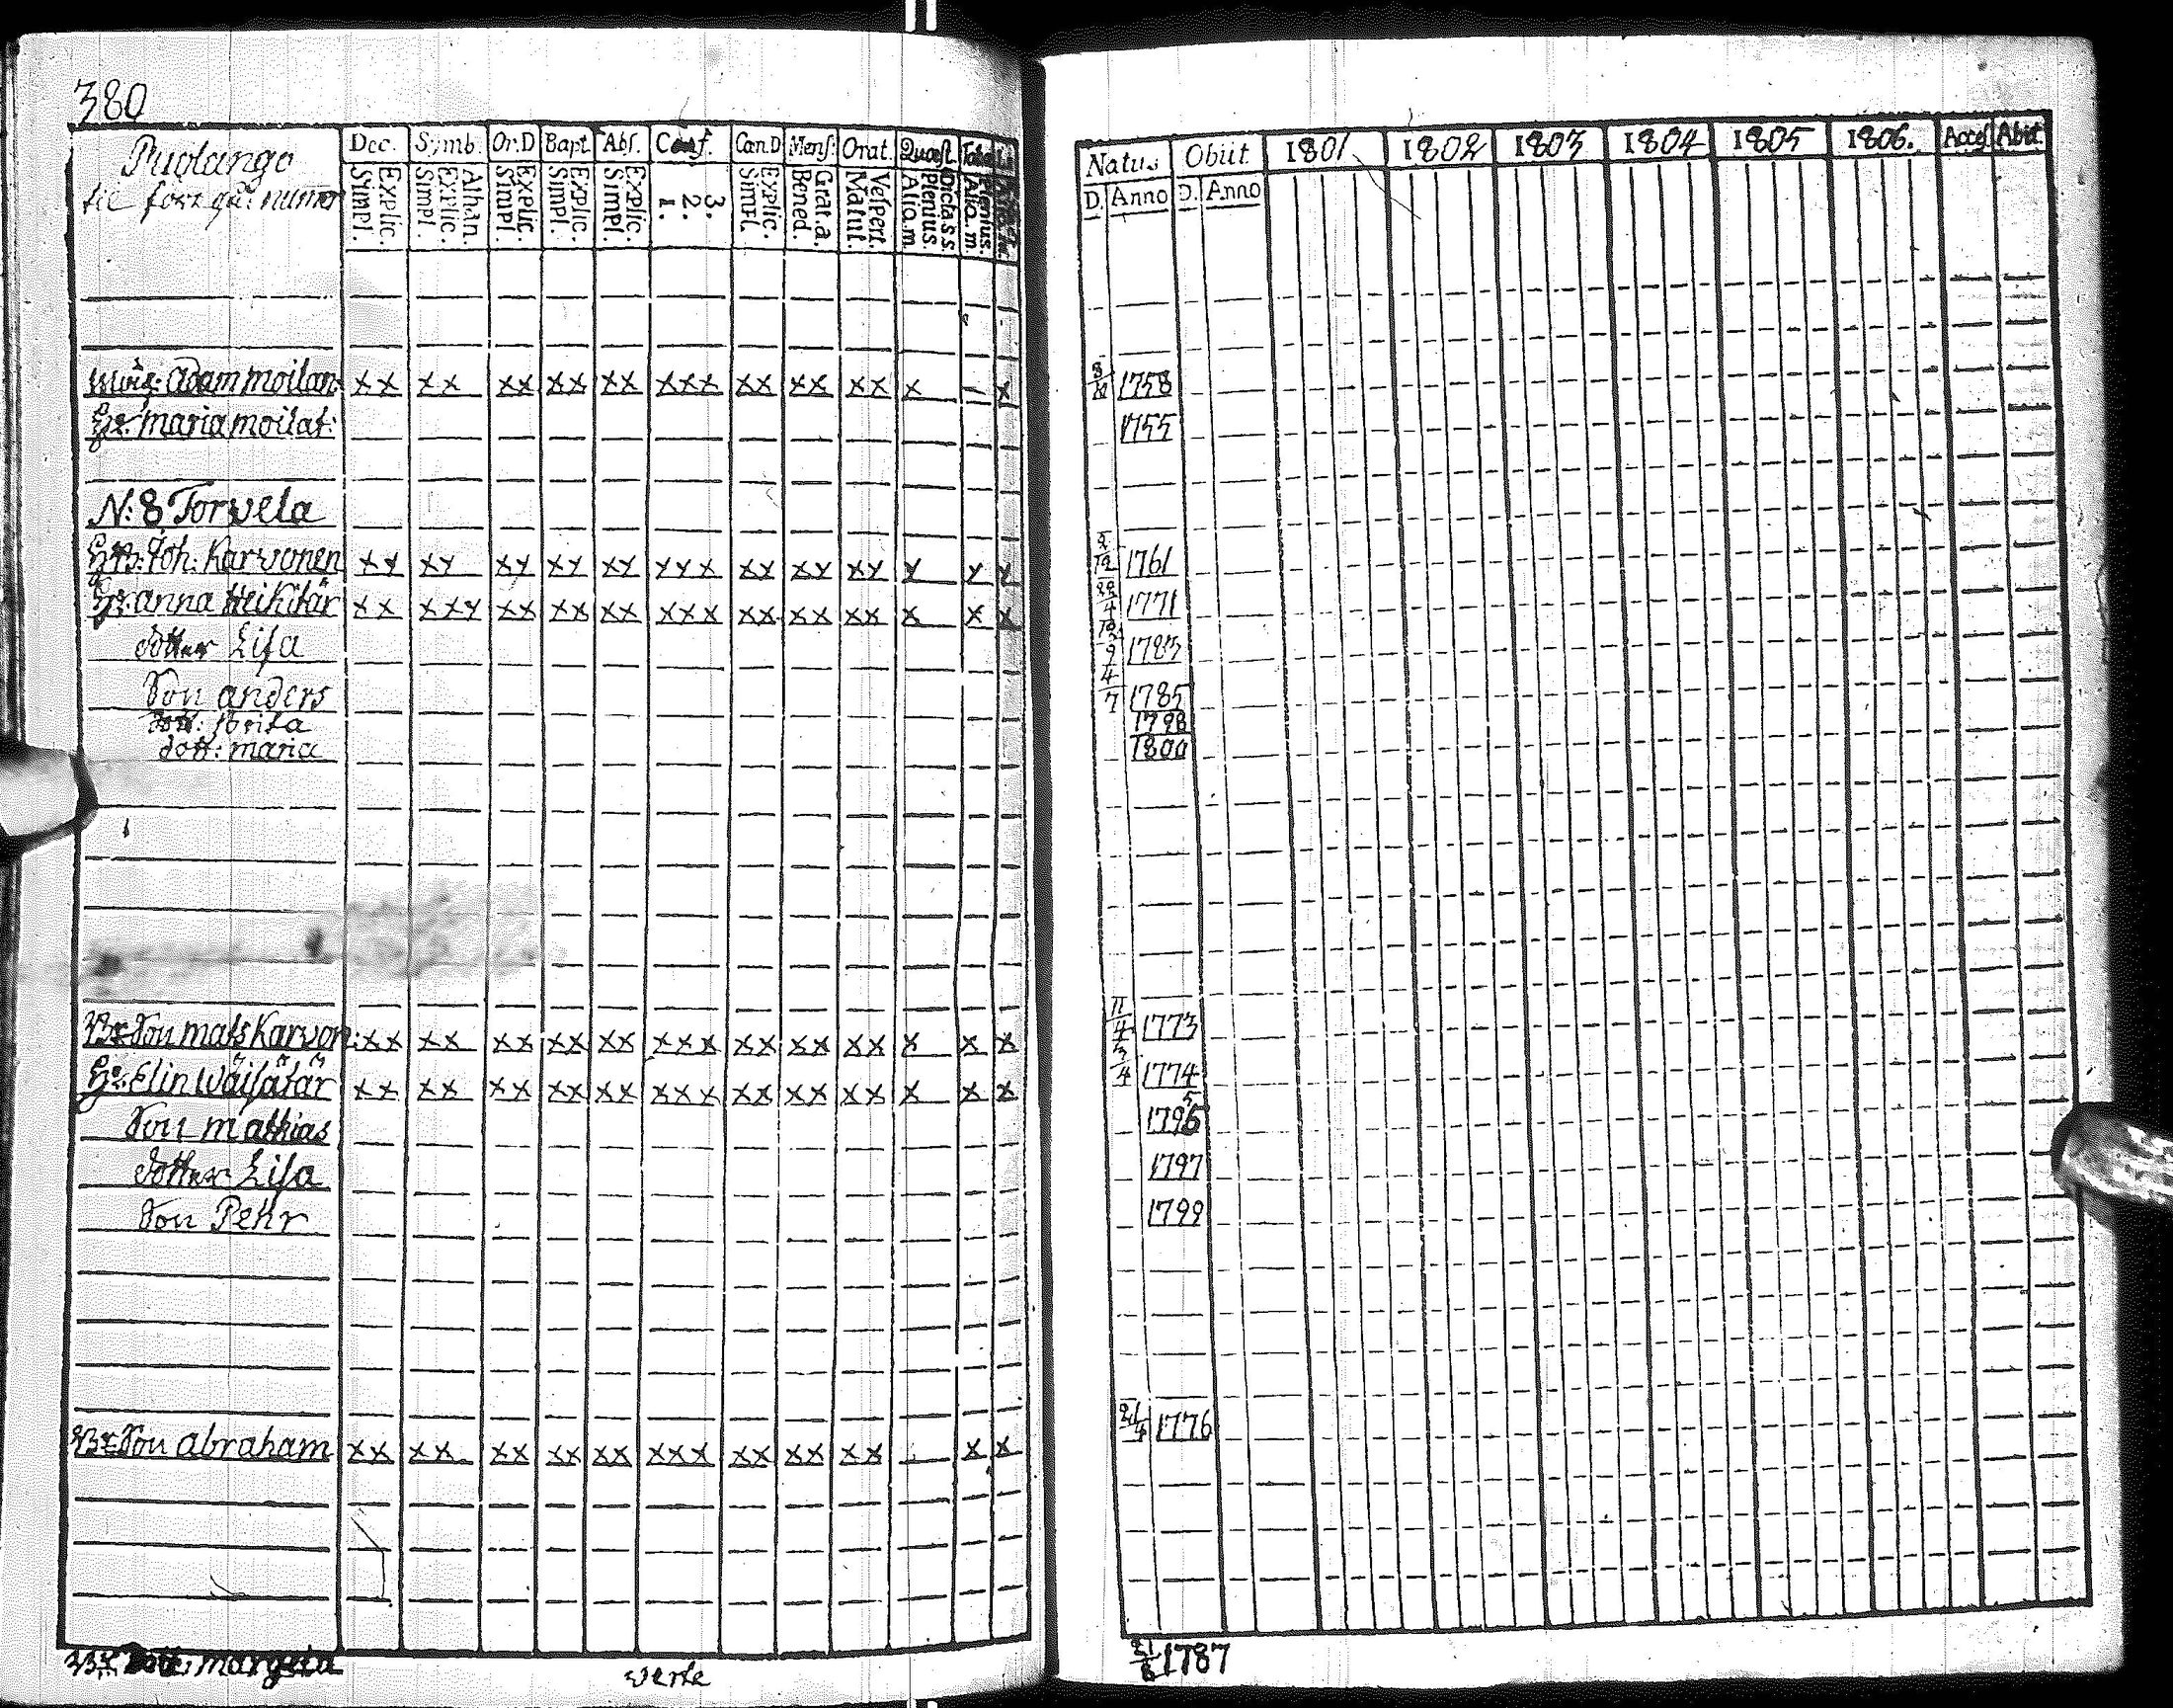 380
Puolango
til förr gå: numer
Dec. Symb. Or.D Bapt. Abs. Conf. Can.D Mens. Orat. Quæst.
Explic. Simpl. Athan. Explic. Simpl. Explic. Simpl. Explic. Simpl. Explic. Simpl. 3. 2. 1. Explic. Simpl. Grat.a. Bened. Vespert. Matut. Dicta ss. Plenius. Aliq.m. Plenius. Aliq.m.
Natus Obiit 1801 1802 1803 1804 1805 1806. Access. Abiit
D. Anno D. Anno
Adam Moilan: xx xx xx xx xx xxx xx xx xx x – x 1758
Maria Moilat: 1755
N: 8 Torvela
Joh: Karvonen xx xx xx xx xx xxx xx xx xx x x x 1761
Anna Heikitär xx xxx xx xx xx xxx xx xx xx x x x 1771
dotter Lisa 1783
Son Anders 4/7 1785
dott: Brita 1798
dott: Maria 1800
Son Mats Karvon: xx xx xx xx xx xxx xx xx xx x x x 11/4 1773
Elin Wäisätär xx xx xx xx xx xxx xx xx xx x x x 3/4 1774
Son Mathias 1795
dotter Lisa 1797
Son Pehr 1799
Son Abraham xx xx xx xx xx xxx xx xx xx x x 21/4 1776
Dott: Margeta 1787
verte